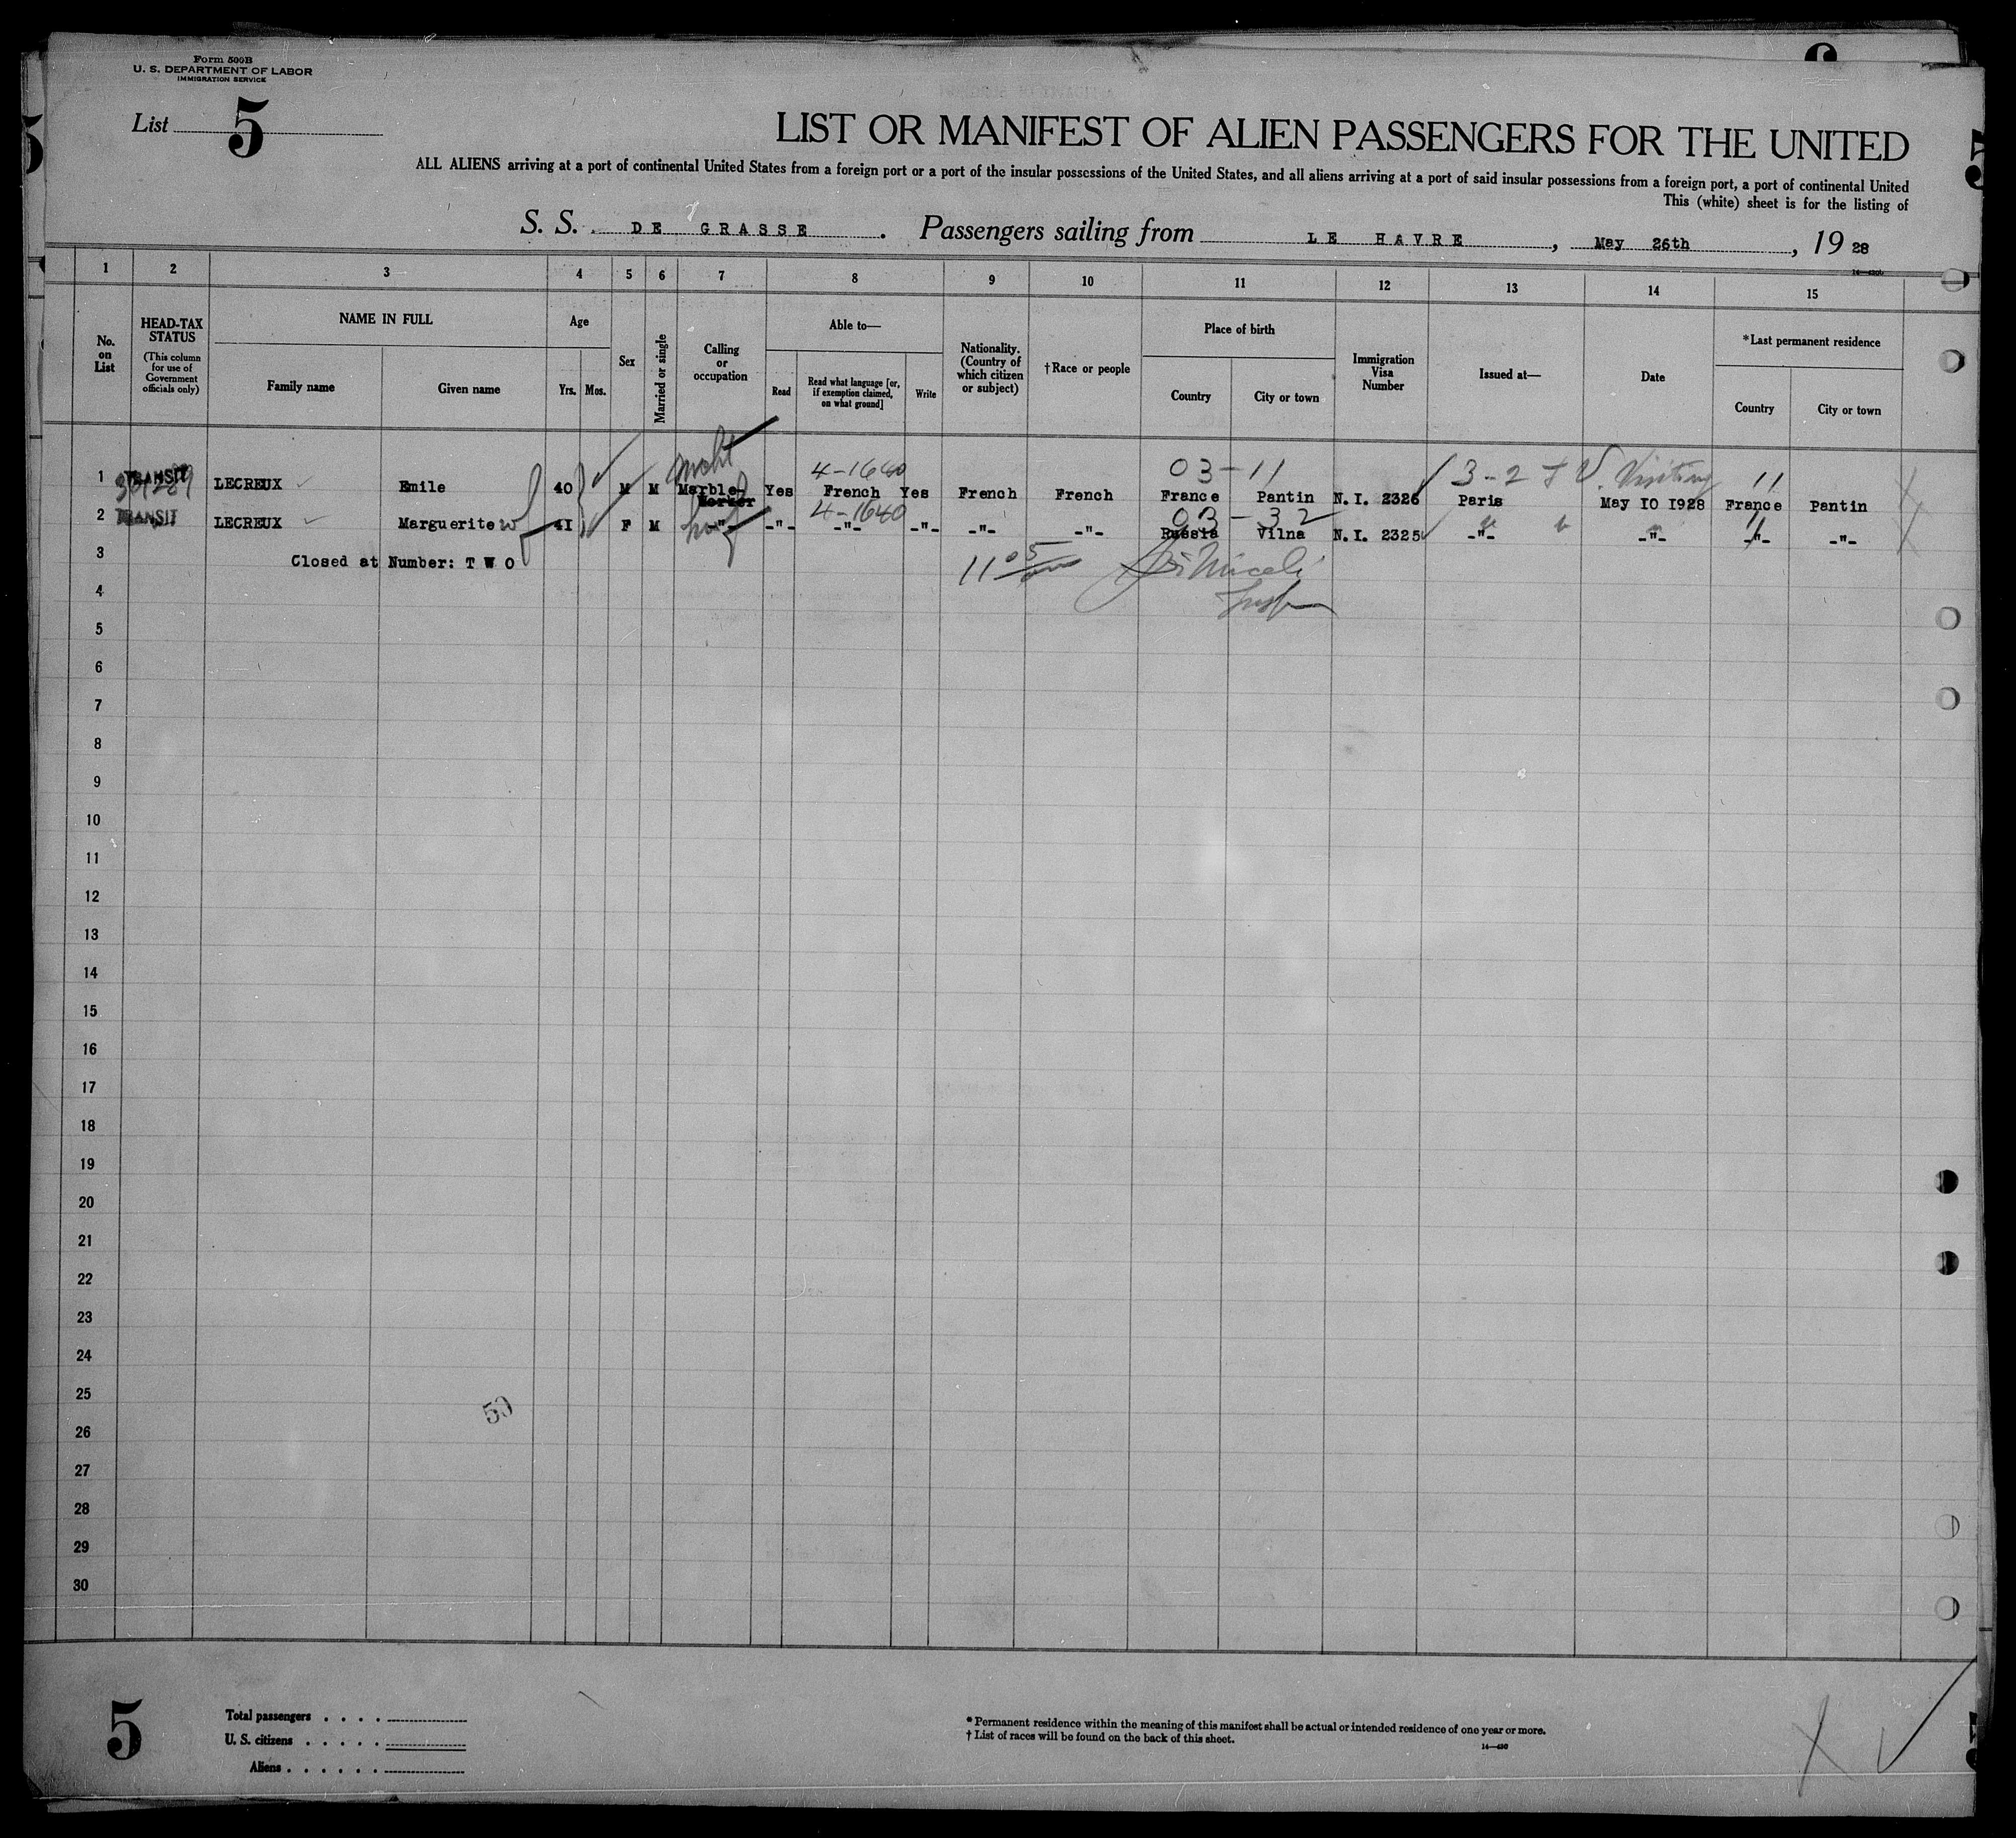 Form 500B
U. S. DEPARTMENT OF LABOR
IMMIGRATION SERVICE
6
List 5
5
5
LIST OR MANIFEST OF ALIEN PASSENGERS FOR THE UNITED
ALL ALIENS arriving at a port of continental United States from a foreign port or a port of the insular possessions of the United States, and all aliens arriving at a port of said insular possessions from a foreign port, a port of continental United
This (white) sheet is for the listing of
S. S. DE GRASSE . Passengers sailing from LE HAVRE , May 26th , 19 28
1 2 3 4 5 6 7 8 9 10 11 12 13 14 15
No. on List
HEAD-TAX STATUS
(This column for use of Government officials only)
NAME IN FULL
Family name
Given name
Age
Yrs.
Mos.
Sex
Married or single
Calling or occupation
Able to—
Read
Read what language [or, if exemption claimed, on what ground]
Write
Nationality. (Country of which citizen or subject)
†Race or people
Place of birth
Country
City or town
Immigration Visa Number
Issued at—
Date
*Last permanent residence
Country
City or town
4-1640 03-11 3-2 Visiting 11
1 TRANSIT LECREUX Emile 40 M M Marble-Worker Yes French Yes French French France Pantin N.I. 2326 Paris May 10 1928 France Pantin
4-1640 03-32 11
2 TRANSIT LECREUX Marguerite w 41 F M -"- -"- -"- -"- -"- -"- Russia Vilna N.I. 2325 -"- -"- -"- -"-
3 Closed at Number: T W O
4
5
6
7
8
9
10
11
12
13
14
15
16
17
18
19
20
21
22
23
24
25
50
26
27
28
29
30
5
Total passengers . . . .
U. S. citizens . . . . .
Aliens . . . . . .
* Permanent residence within the meaning of this manifest shall be actual or intended residence of one year or more.
† List of races will be found on the back of this sheet.
5